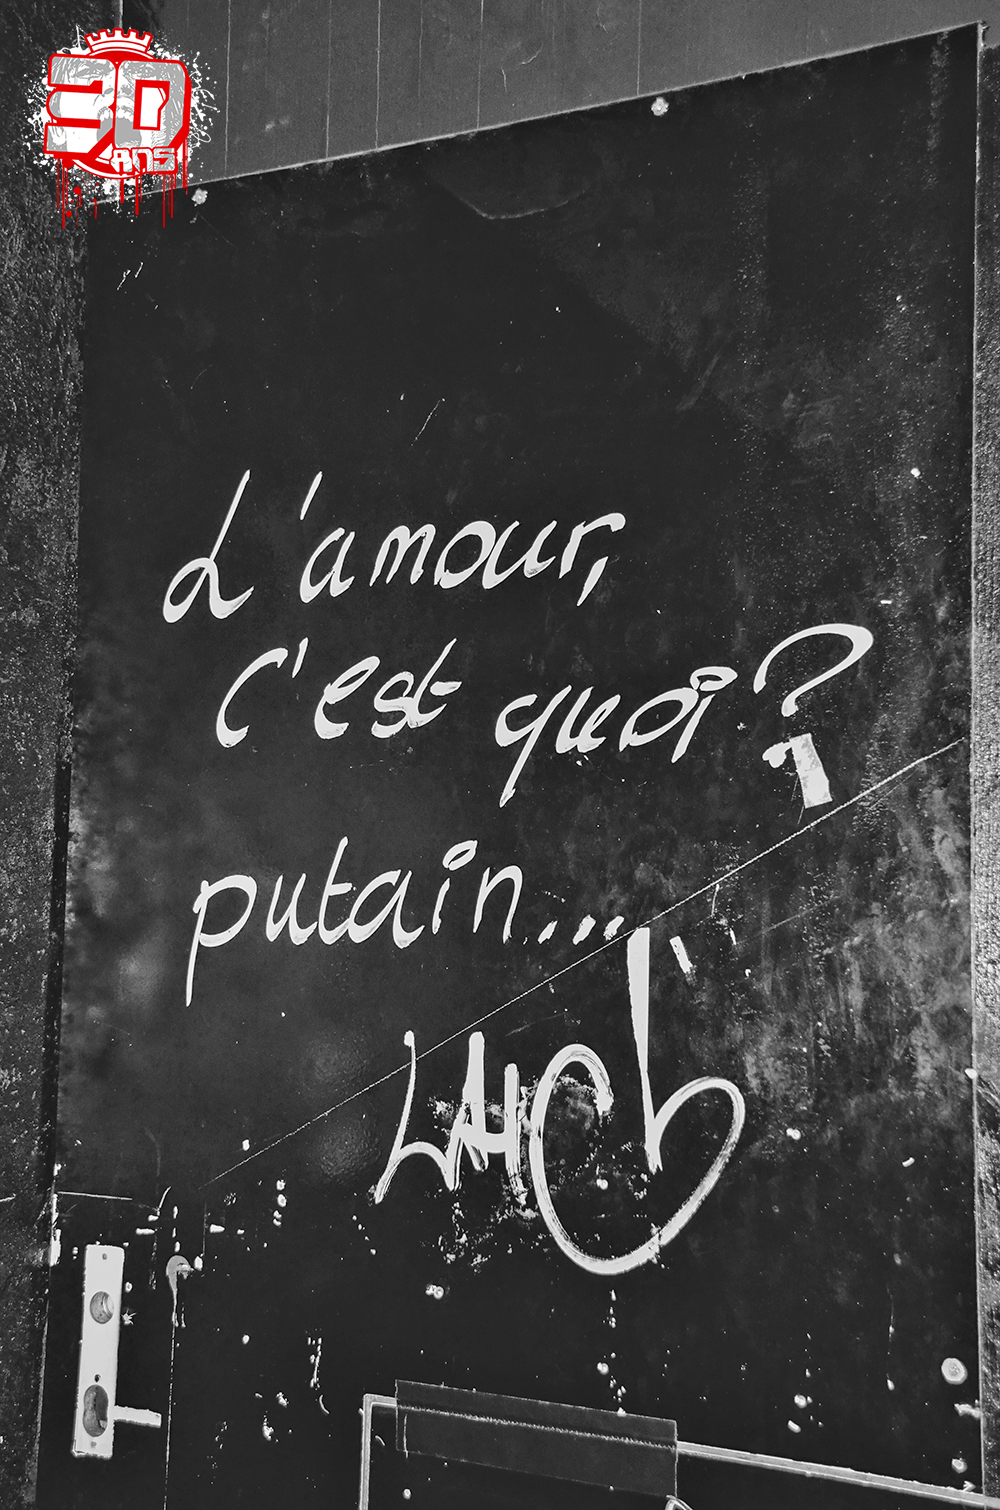 30
ANS
L'amour,
c'est quoi?
putain...